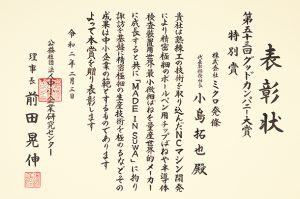 表彰状
第五十三回グッドカンパニー大賞
特別賞
株式会社 ミクロ発條
代表取締役社長
小島拓也 殿
貴社は熟練工の技術を取り込んだNCマシン開発
で精密極細のボールペン用チップばねや半導体
検査装置用世界最小微細ばねを量産世界的メーカー
に成長すると共に「MADE IN SUWA」に拘り
諏訪を基盤に精密極細の生産技術を極めるなどその
成果は中小企業の範とするものであります
よって本賞を贈り表彰します
令和二年二月三日
公益社団法人中小企業研究センター
理事長 前田晃伸